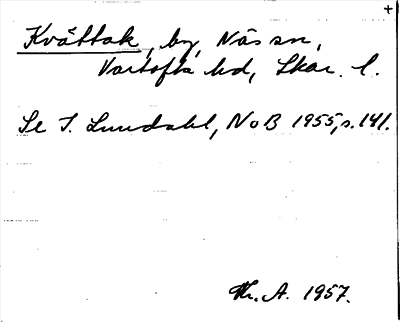 +
Kvättak, by, Näs sn,
Vartofta hd, Skar. l.
Se I. Lundahl, NoB 1955, s. 141.
Hr. A. 1957.